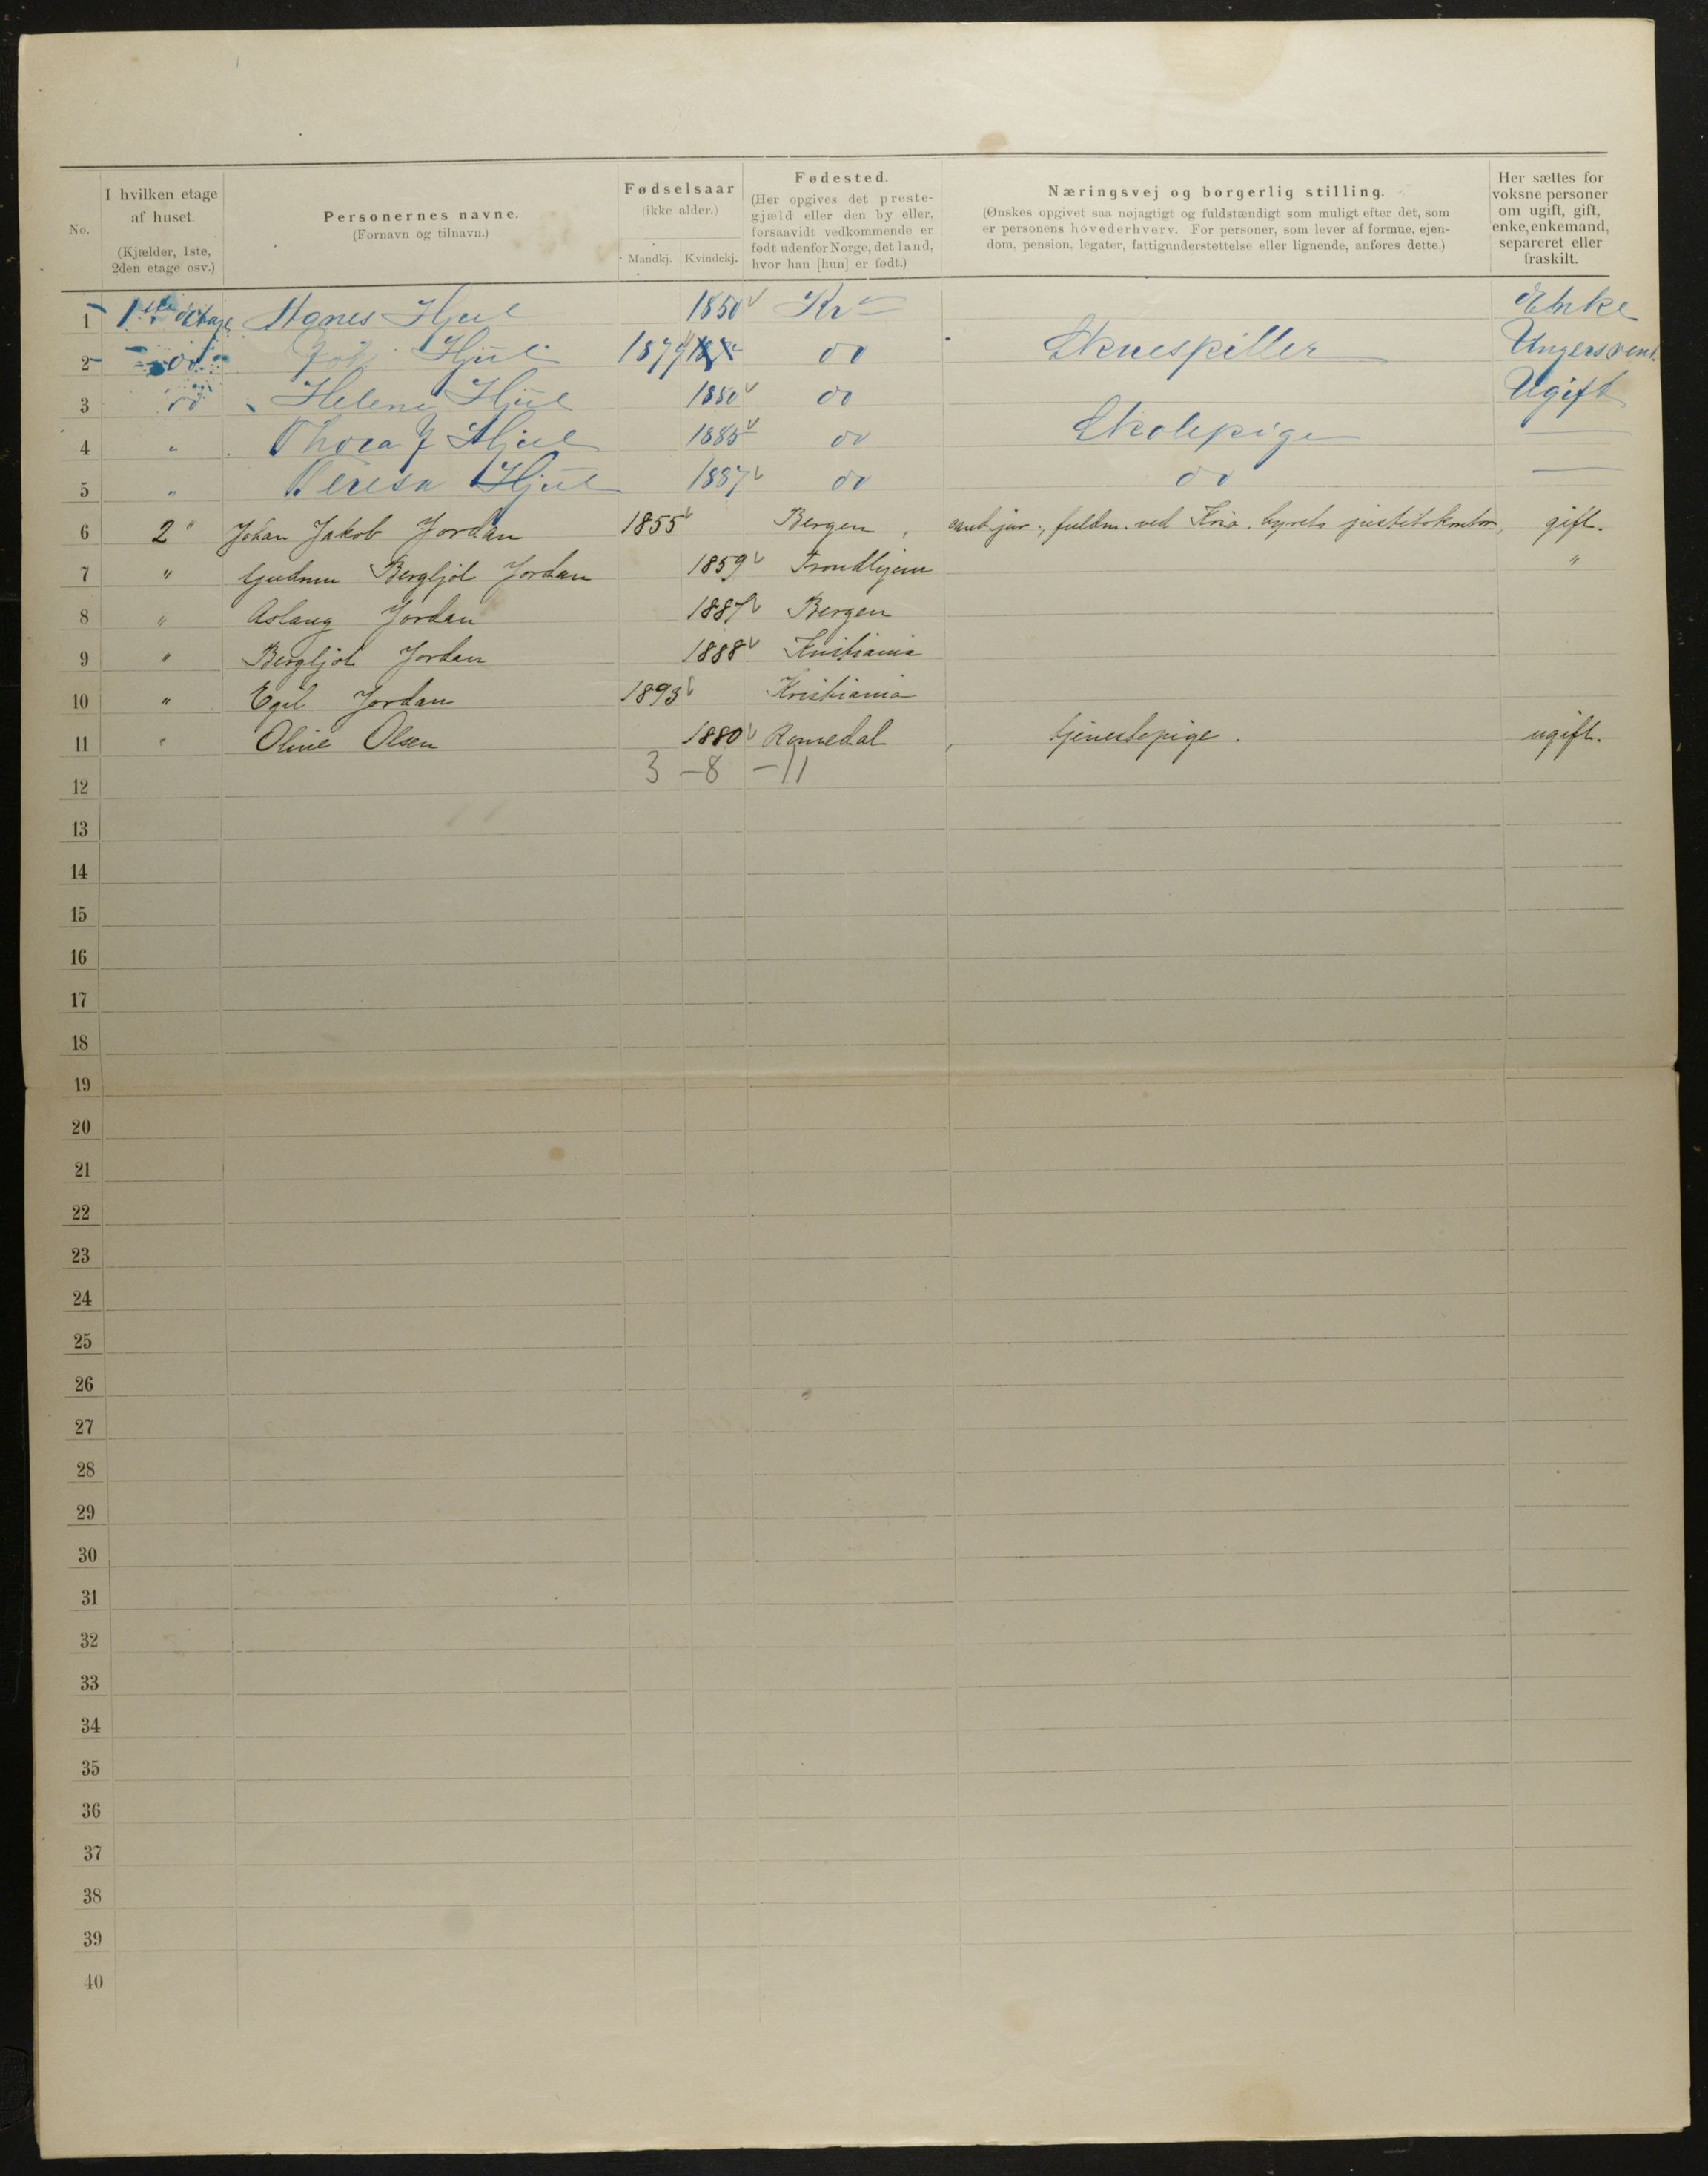 No.
I hvilken etage af huset. (Kjælder, 1ste, 2den etage osv.)
Personernes navne. (Fornavn og tilnavn.)
Fødselsaar (ikke alder.) Mandkj. Kvindekj.
Fødested. (Her opgives det prestegjæld eller den by eller, forsaavidt vedkommende er født udenfor Norge, det land, hvor han [hun] er født.)
Næringsvej og borgerlig stilling. (Ønskes opgivet saa nøjagtigt og fuldstændigt som muligt efter det, som er personens hovederhverv. For personer, som lever af formue, ejendom, pension, legater, fattigunderstøttelse eller lignende, anføres dette.)
Her sættes for voksne personer om ugift, gift, enke, enkemand, separeret eller fraskilt.
1 1ste Etage Agnes Hjul 1850 Kr Enke
2 do Hjul 1879 do Skuespiller Ungersvend
3 do Helene Hjul 1880 do Ugift
4 " Thora J Hjul 1885 do Skolepige —
5 " Teresa Hjul 1887 do do —
6 2" Johan Jakob Jordan 1855 Bergen, cand. jur., fuldm. ved Kria. byrets justitskontor, gift.
7 " Gudrun Bergljot Jordan 1859 Trondhjem "
8 " Aslaug Jordan 1887 Bergen
9 " Bergljot Jordan 1888 Kristiania
10 " Egil Jordan 1893 Kristiania
11 " Oline Olsen 1880 Romedal tjenestepige. ugift.
3 – 8 – 11
12
13
14
15
16
17
18
19
20
21
22
23
24
25
26
27
28
29
30
31
32
33
34
35
36
37
38
39
40